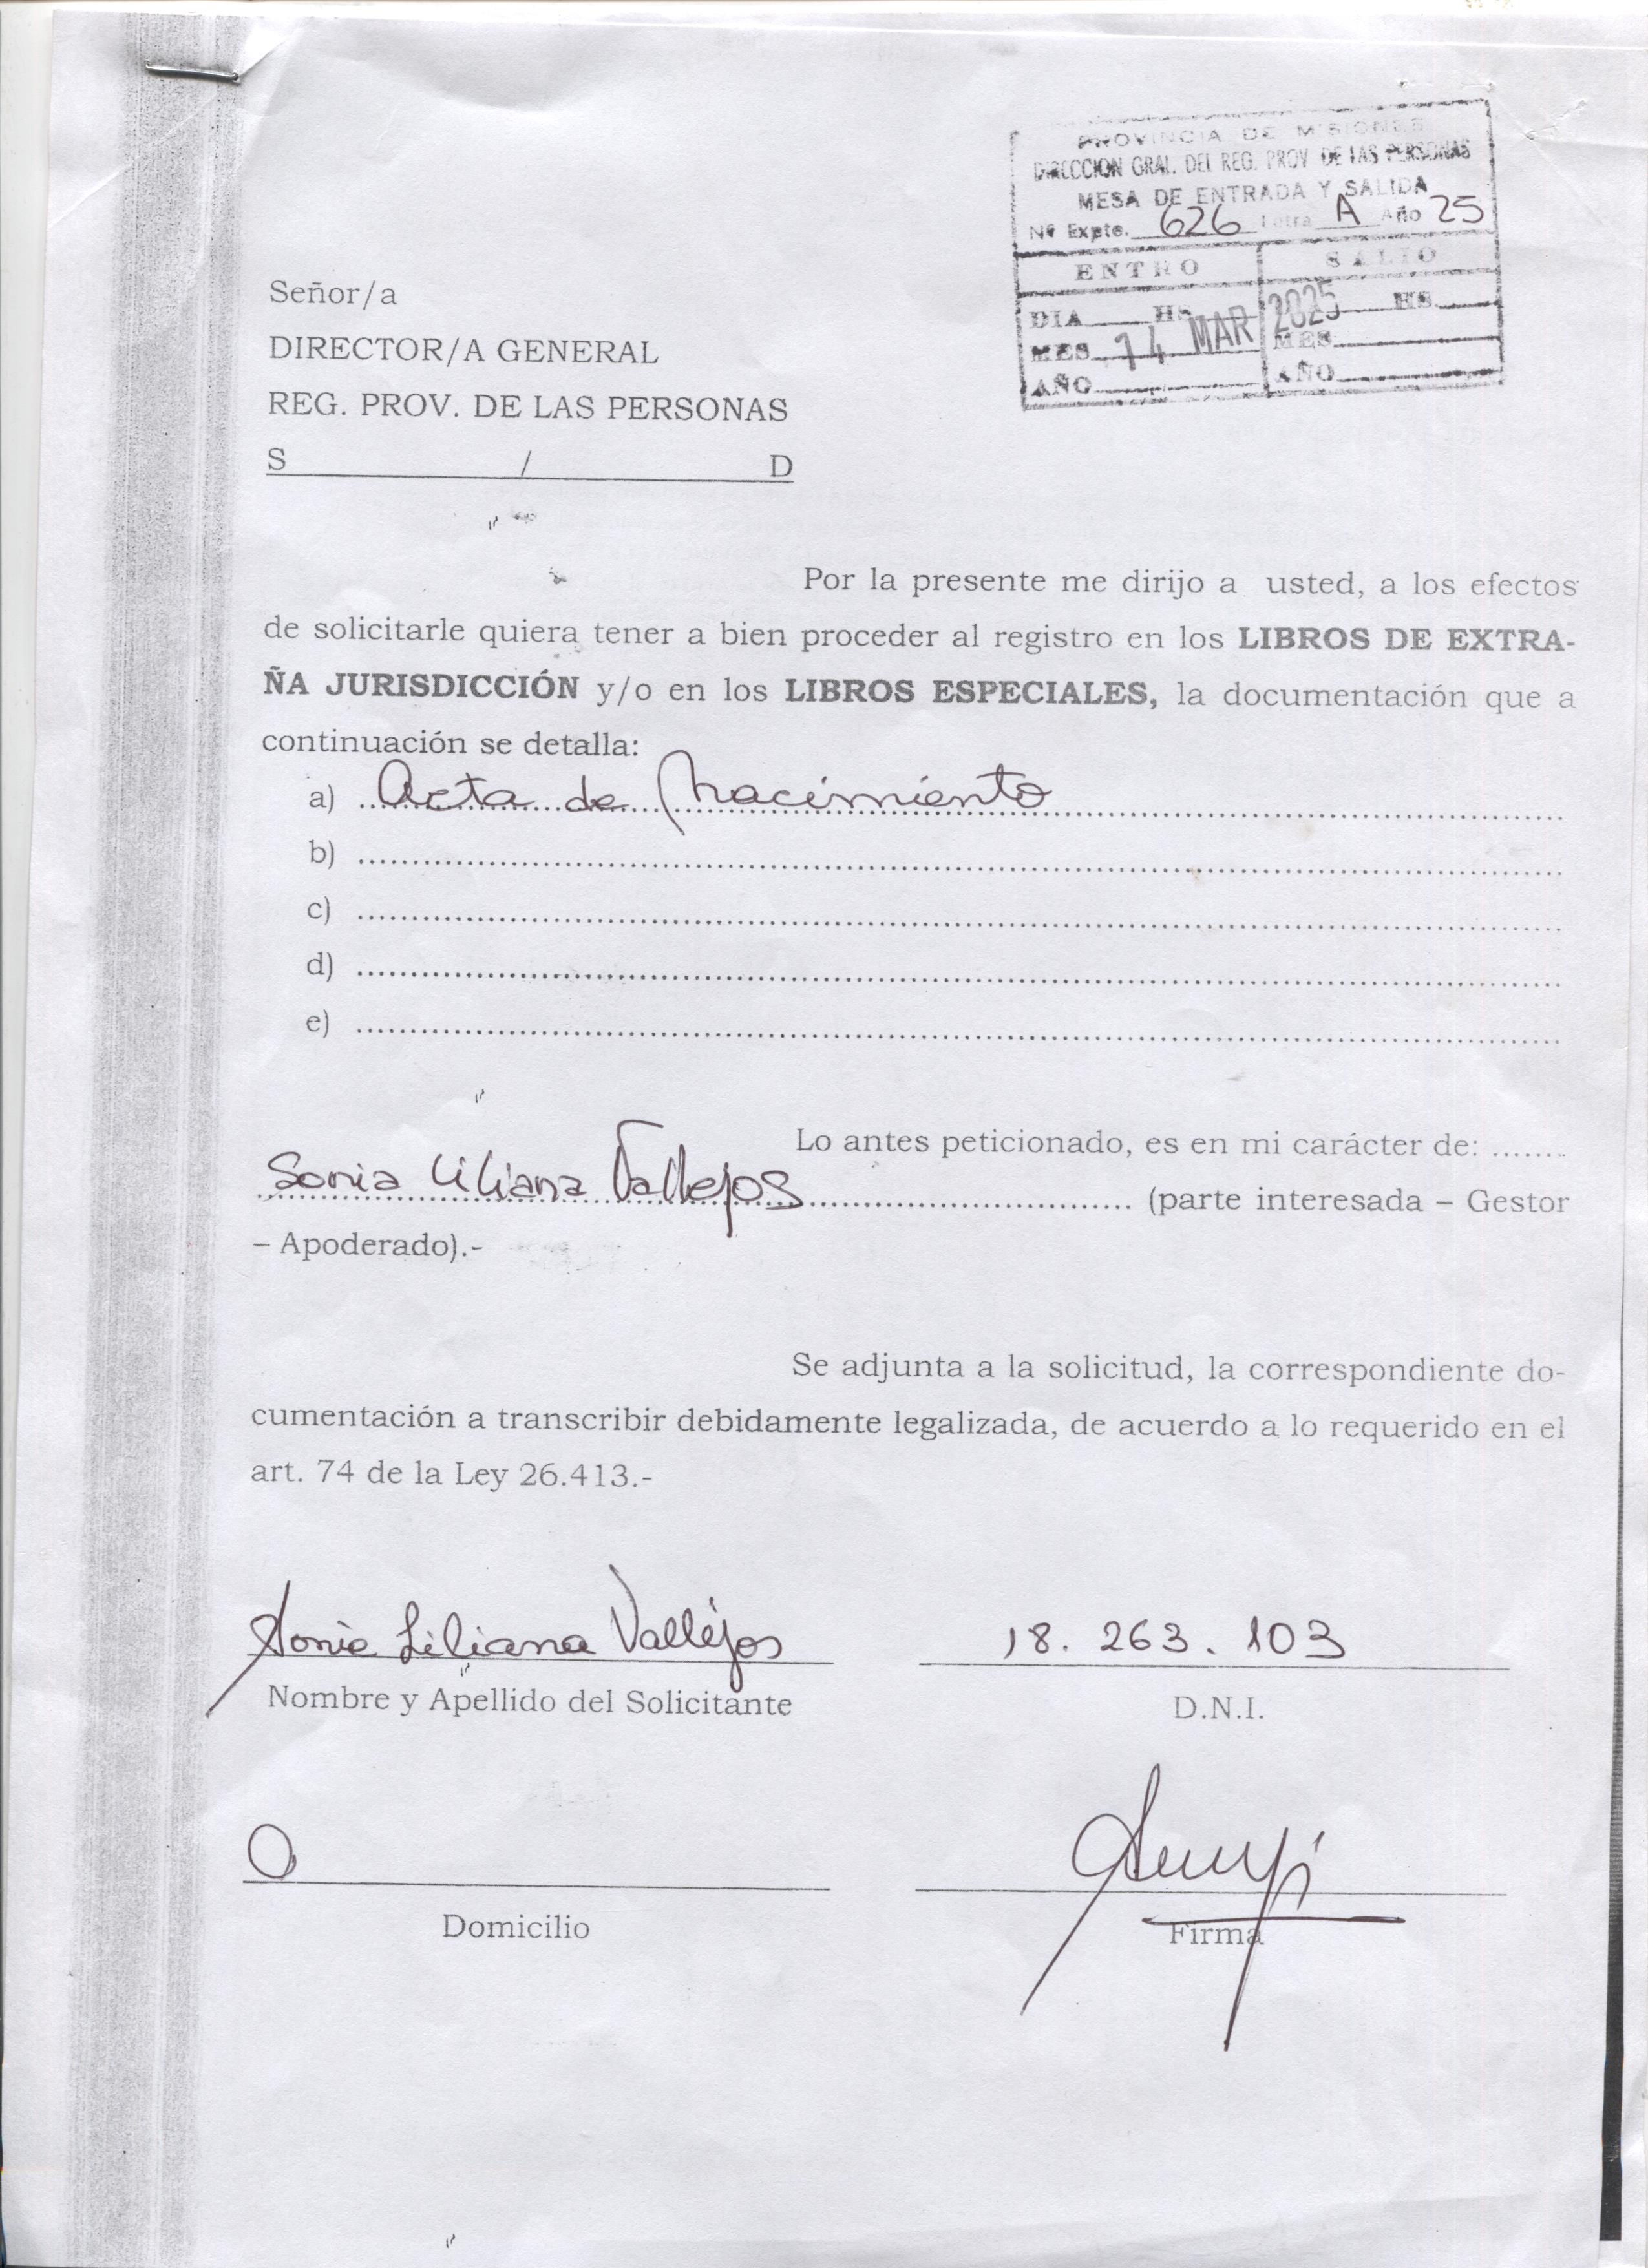 PROVINCIA DE MISIONES
DIRECCION GRAL. DEL REG. PROV. DE LAS PERSONAS
MESA DE ENTRADA Y SALIDA
Nº Expte. 626 Letra A Año 25
ENTRO SALIO
DIA HS HS
MES 14 MAR 2025 MES
AÑO AÑO
Señor/a
DIRECTOR/A GENERAL
REG. PROV. DE LAS PERSONAS
S / D
Por la presente me dirijo a usted, a los efectos
de solicitarle quiera tener a bien proceder al registro en los LIBROS DE EXTRA-
ÑA JURISDICCIÓN y/o en los LIBROS ESPECIALES, la documentación que a
continuación se detalla:
a) Acta de Nacimiento
b)
c)
d)
e)
Lo antes peticionado, es en mi carácter de: .......
Sonia Liliana Vallejos (parte interesada – Gestor
– Apoderado).-
Se adjunta a la solicitud, la correspondiente do-
cumentación a transcribir debidamente legalizada, de acuerdo a lo requerido en el
art. 74 de la Ley 26.413.-
Sonia Liliana Vallejos 18. 263. 103
Nombre y Apellido del Solicitante D.N.I.
Domicilio Firma